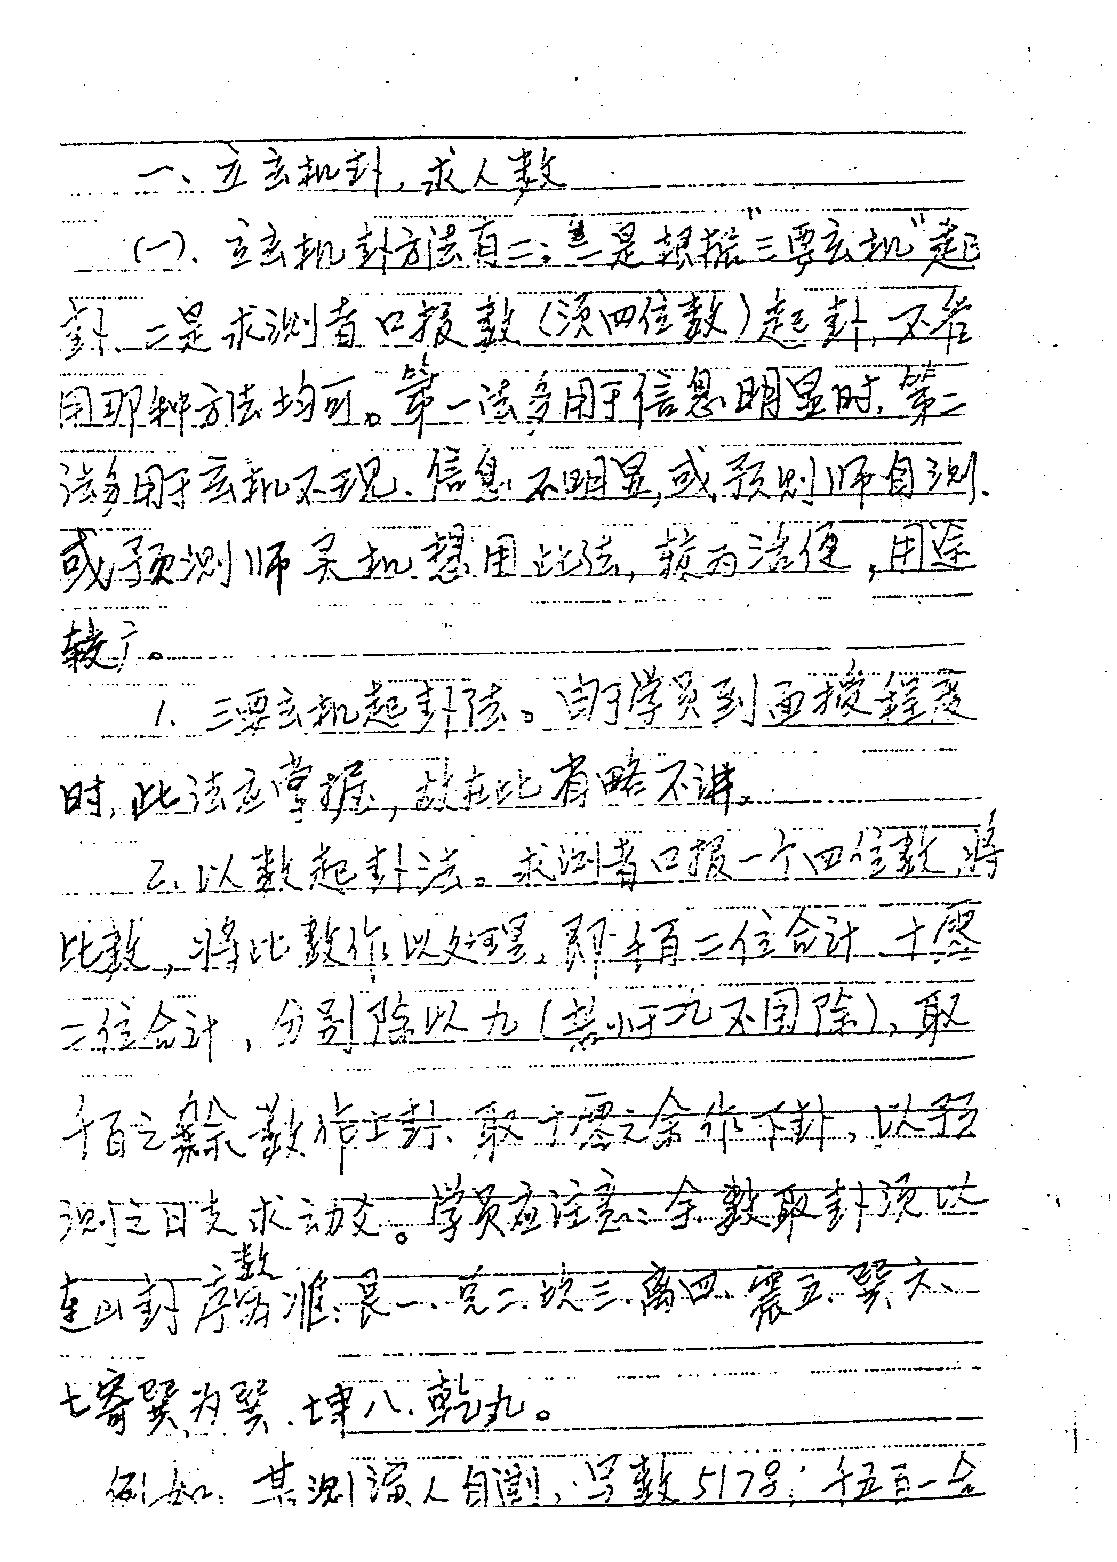 一、立玄机卦,求人数
(一)、立玄机卦方法有二:一是根据“三要玄机”起
卦、二是求测者口报数(须四位数)起卦,不管
用那种方法均可。第一法多用于信息明显时,第二
法多用于玄机不现、信息不明显,或预测师自测、
或预测师灵机想用此法,较为活便,用途
较广。
1、三要玄机起卦法。由于学员到面授程度
时,此法应掌握,故在此省略不讲。
2、以数起卦法。求测者口报一个四位数,将
此数,将此数作以处理、即千百二位合计、十零
二位合计,分别除以九(若小于九不用除),取
千百之余数作上卦、取十零之余作下卦,以预
测之日支求动爻。学员应注意:余数取卦须以
连山卦序数为准、艮一、兑二、坎三、离四、震五、巽六、
七寄巽为巽、坤八、乾九。
例如、某测演人自测,写数5178;千五百一合